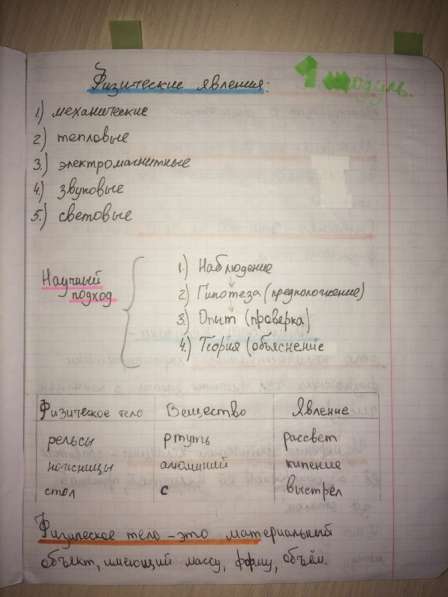 Физические явления:
1 модуль.
1) механические
2) тепловые
3.) электромагнитные
4.) звуковые
5.) световые
Научный подход
1.) Наблюдение
2) Гипотеза (предположение)
3) Опыт (проверка)
4) Теория (объяснение
Физическое тело Вещество Явление
рельсы ртуть рассвет
ножницы алюминий кипение
стол с выстрел
Физическое тело - это материальный
объект, имеющий массу, форму, объём.